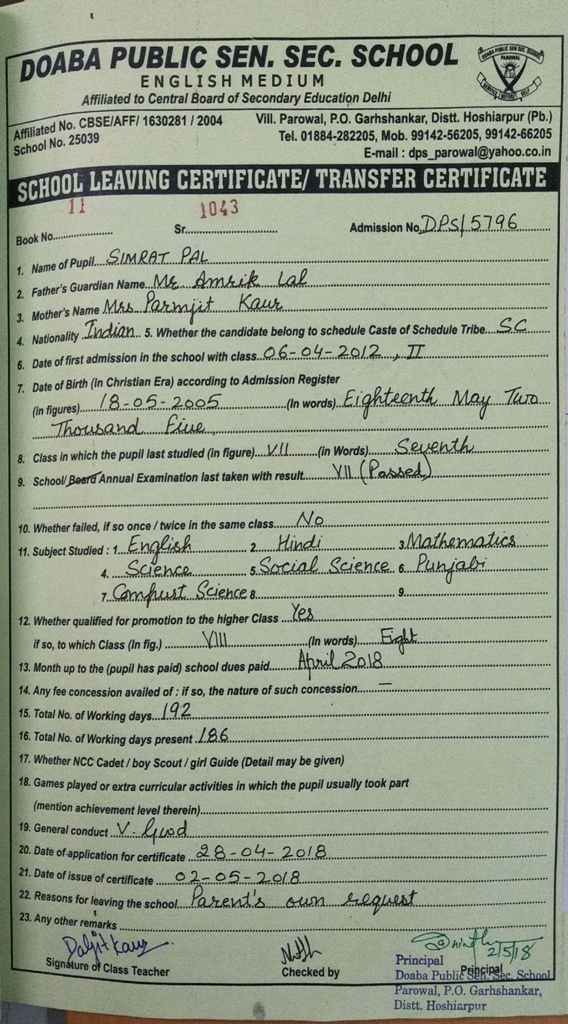 DOABA PUBLIC SEN. SEC. SCHOOL
ENGLISH MEDIUM
Affiliated to Central Board of Secondary Education Delhi
DOABA PUBLIC SEN. SEC. SCHOOL
PAROWAL
Affiliated No. CBSE/AFF/ 1630281 / 2004
School No. 25039
Vill. Parowal, P.O. Garhshankar, Distt. Hoshiarpur (Pb.)
Tel. 01884-282205, Mob. 99142-56205, 99142-66205
E-mail : dps_parowal@yahoo.co.in
SCHOOL LEAVING CERTIFICATE/ TRANSFER CERTIFICATE
Book No. 11 Sr. 1043 Admission No. DPS/5796
1. Name of Pupil SIMRAT PAL
2. Father's Guardian Name Mr Amrik Lal
3. Mother's Name Mrs Parmjit Kaur
4. Nationality Indian 5. Whether the candidate belong to schedule Caste of Schedule Tribe SC
6. Date of first admission in the school with class 06-04-2012, II
7. Date of Birth (in Christian Era) according to Admission Register
(in figures) 18-05-2005 (In words) Eighteenth May Two
Thousand Five
8. Class in which the pupil last studied (in figure) VII (in Words) Seventh
9. School/Board Annual Examination last taken with result VII (Passed)
10. Whether failed, if so once / twice in the same class No
11. Subject Studied : 1. English 2 Hindi 3 Mathematics
4. Science 5 Social Science 6 Punjabi
7 Comput Science 8 9
12. Whether qualified for promotion to the higher Class Yes
if so, to which Class (In fig.) VIII (In words) Eight
13. Month up to the (pupil has paid) school dues paid April 2018
14. Any fee concession availed of : if so, the nature of such concession —
15. Total No. of Working days 192
16. Total No. of Working days present 186
17. Whether NCC Cadet / boy Scout / girl Guide (Detail may be given)
18. Games played or extra curricular activities in which the pupil usually took part
(mention achievement level therein)
19. General conduct V. Good
20. Date of application for certificate 28-04-2018
21. Date of issue of certificate 02-05-2018
22. Reasons for leaving the school Parent's own request
23. Any other remarks
Daljit Kaur
2/5/18
Signature of Class Teacher Checked by Principal
Principal
Doaba Public Sen. Sec. School
Parowal, P.O. Garhshankar,
Distt. Hoshiarpur